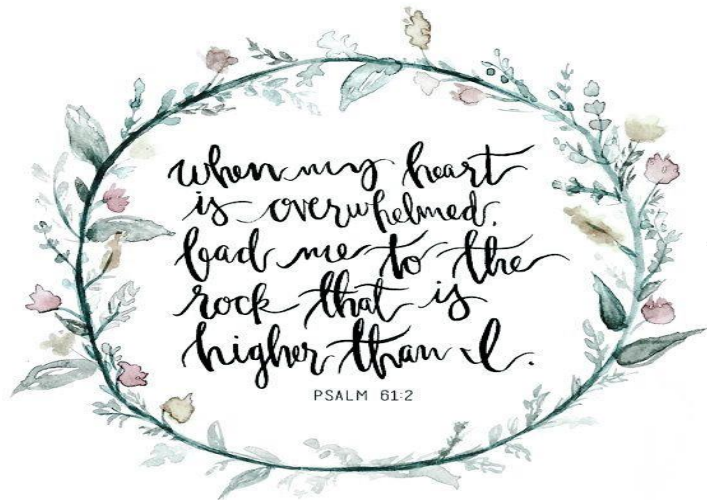 when my heart
is overwhelmed.
lead me to the
rock that is
higher than I.
PSALM 61:2